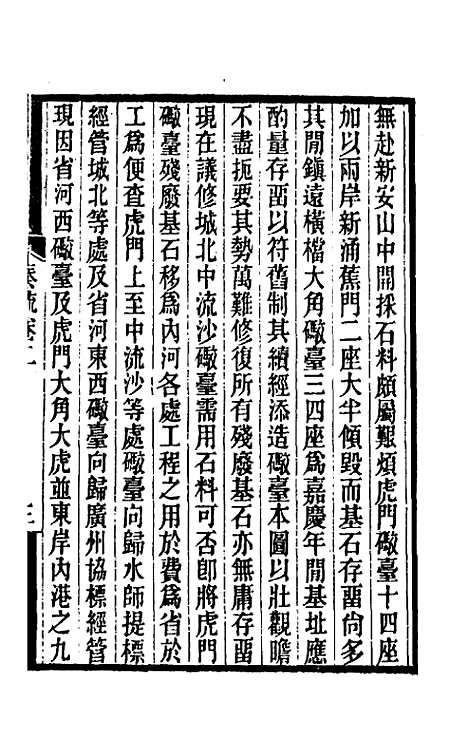 無赴新安山中開採石料頗屬艱煩虎門礮臺十四座
加以兩岸新涌蕉門二座大半傾毀而基石存畱尙多
其閒鎮遠橫檔大角礮臺三四座爲嘉慶年閒基址應
酌量存畱以符舊制其續經添造礮臺本圖以壯觀瞻
不盡扼要其勢萬難修復所有殘廢基石亦無庸存畱
現在議修城北中流沙礮臺需用石料可否卽將虎門
礮臺殘廢基石移爲內河各處工程之用於費爲省於
工爲便査虎門上至中流沙等處礮臺向歸水師提標
經管城北等處及省河東西礮臺向歸廣州協標經管
現因省河西礮臺及虎門大角大虎並東岸內港之九
奏疏卷二
三